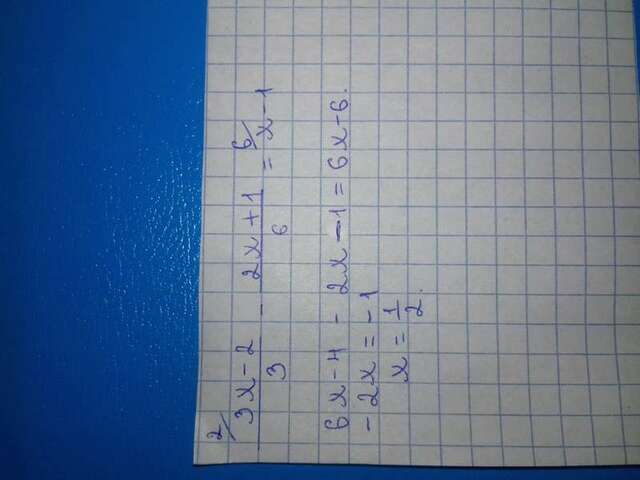 2/ 3x-2 / 3 - 2x+1 / 6 = 6/ x-1
6x-4 - 2x-1 = 6x-6.
-2x = -1
x = 1/2.